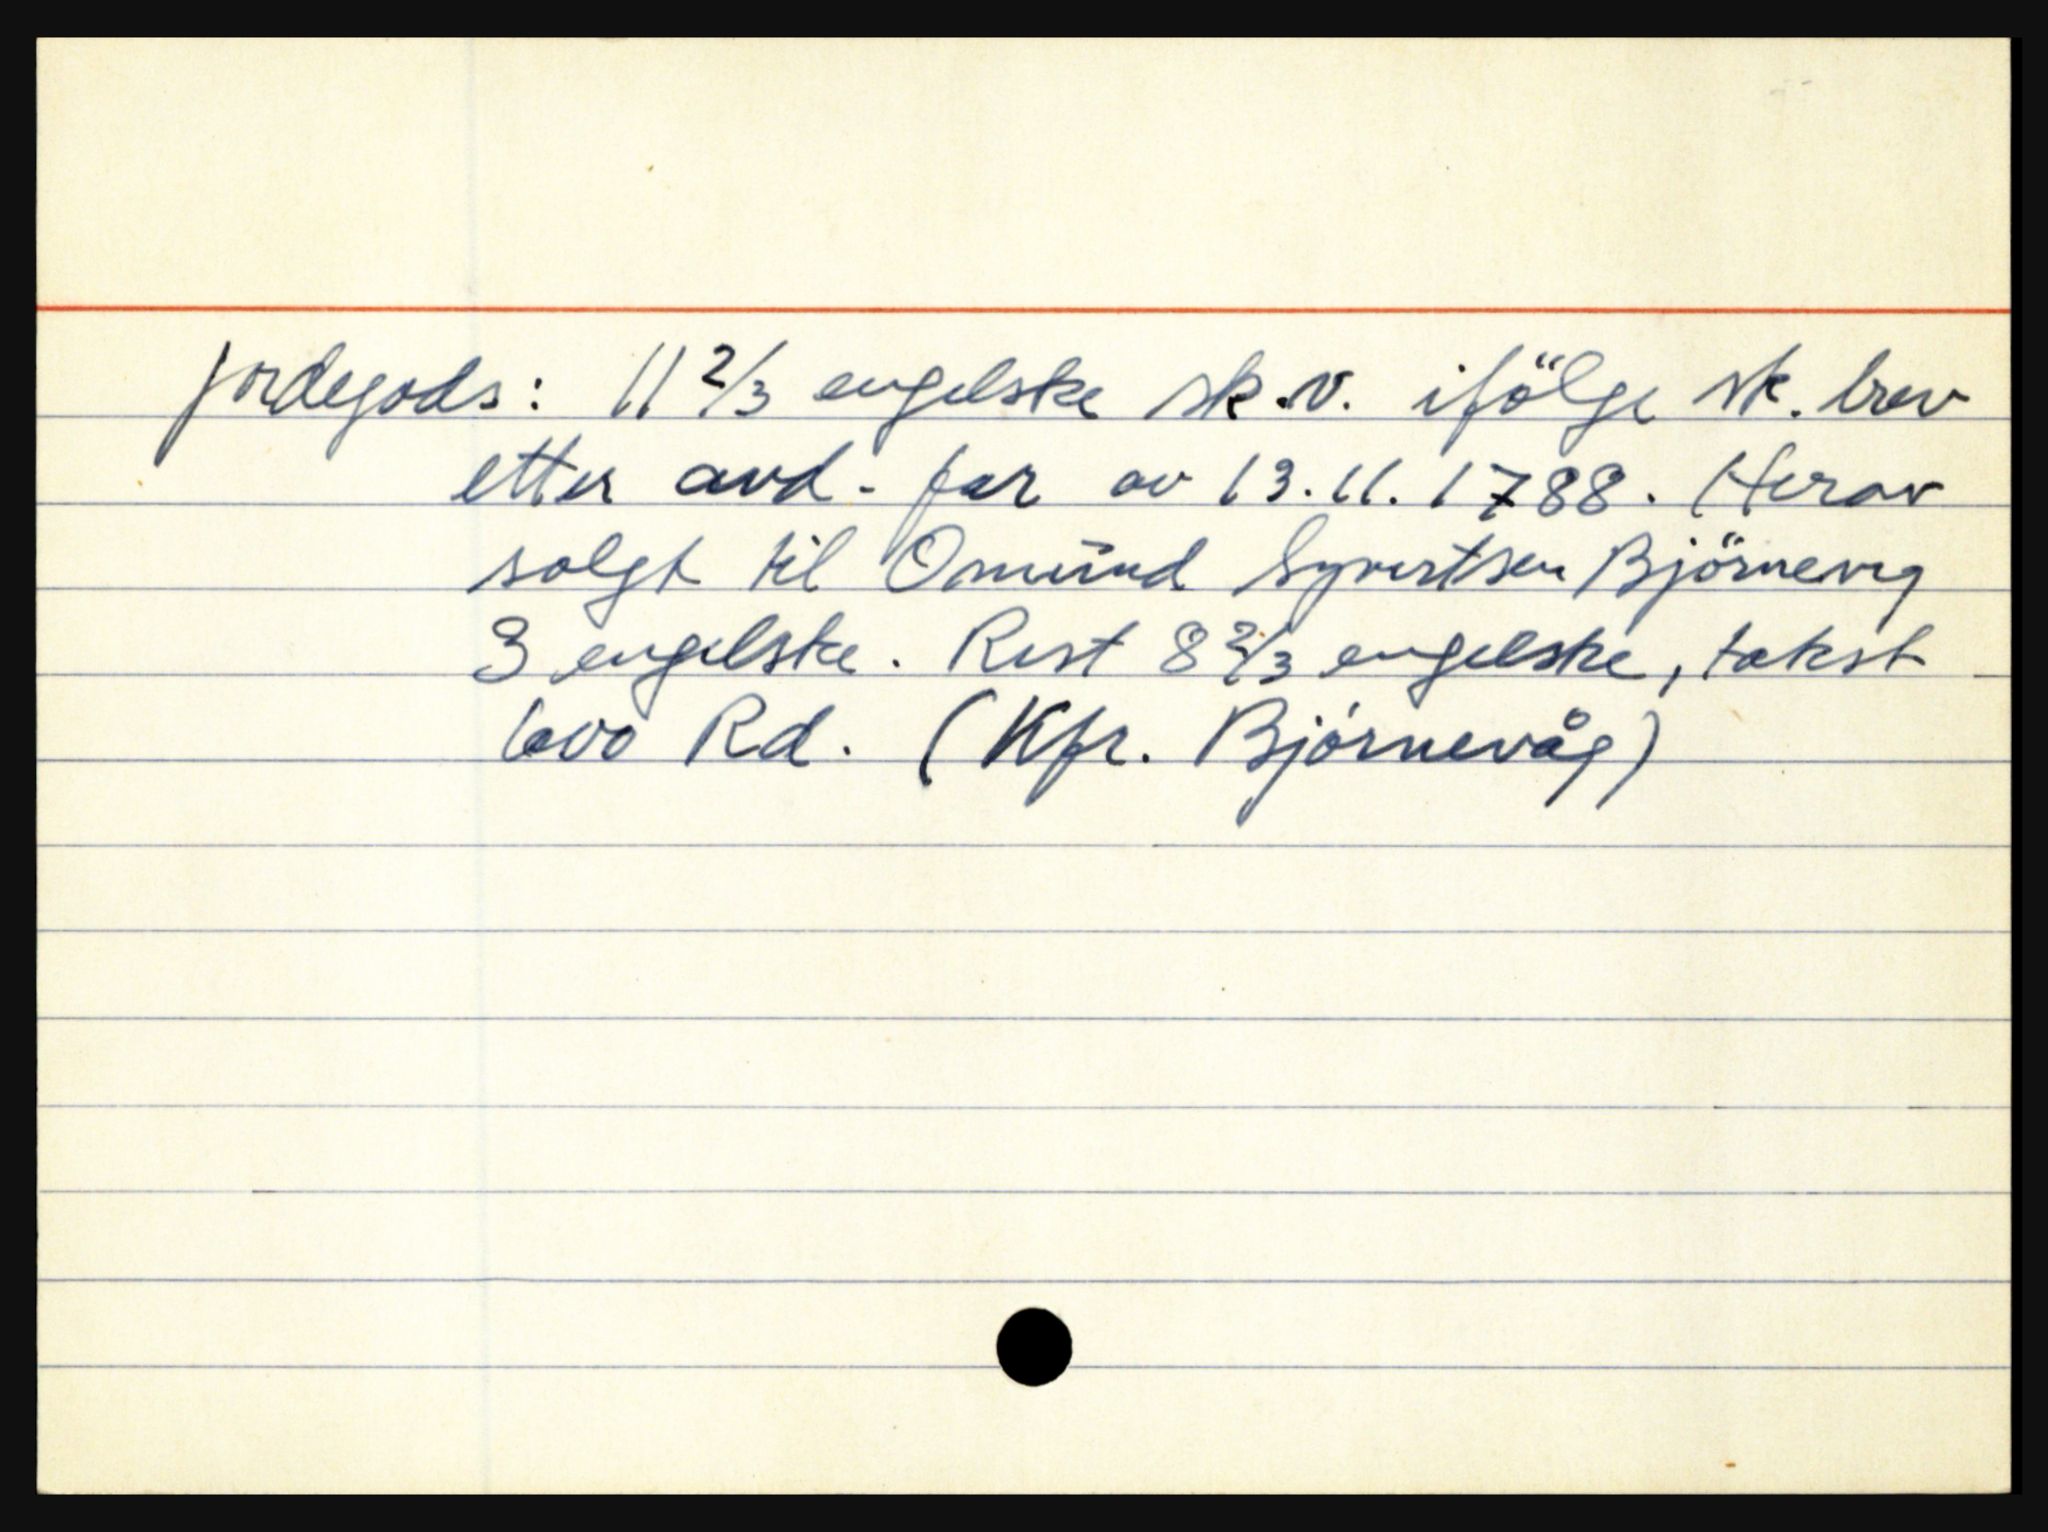 Jordegods: 11 2/3 engelske sk.v. ifölge sk. brev
etter avd. far av 13.11.1788. Herav
solgt til Omund Syvertsen Björnevig
3 engelske. Rest 8 2/3 engelske, takst
600 Rd. (Kfr. Björnevåg)